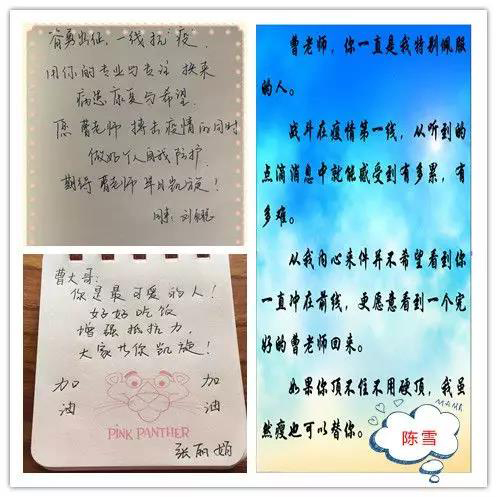 奋勇出征，一线抗疫.
用你的专业与专注 换来
病患康复与希望.
愿 曹老师 搏击疫情的同时
做好个人自我防护.
期待曹老师 早日凯旋！
同事：刘
曹大哥：
你是最可爱的人！
好好吃饭
增强抵抗力，
大家等你凯旋！
加油
加油
PINK PANTHER
张丽娟
曹老师，你一直是我特别佩服
的人。
战斗在疫情第一线，从听到的
点滴消息中就能感受到有多累，有
多难。
从我内心来件并不希望看到你
一直冲在前线，更愿意看到一个完
好的曹老师回来。
如果你顶不住不用硬顶，我虽
然瘦也可以替你。
陈雪